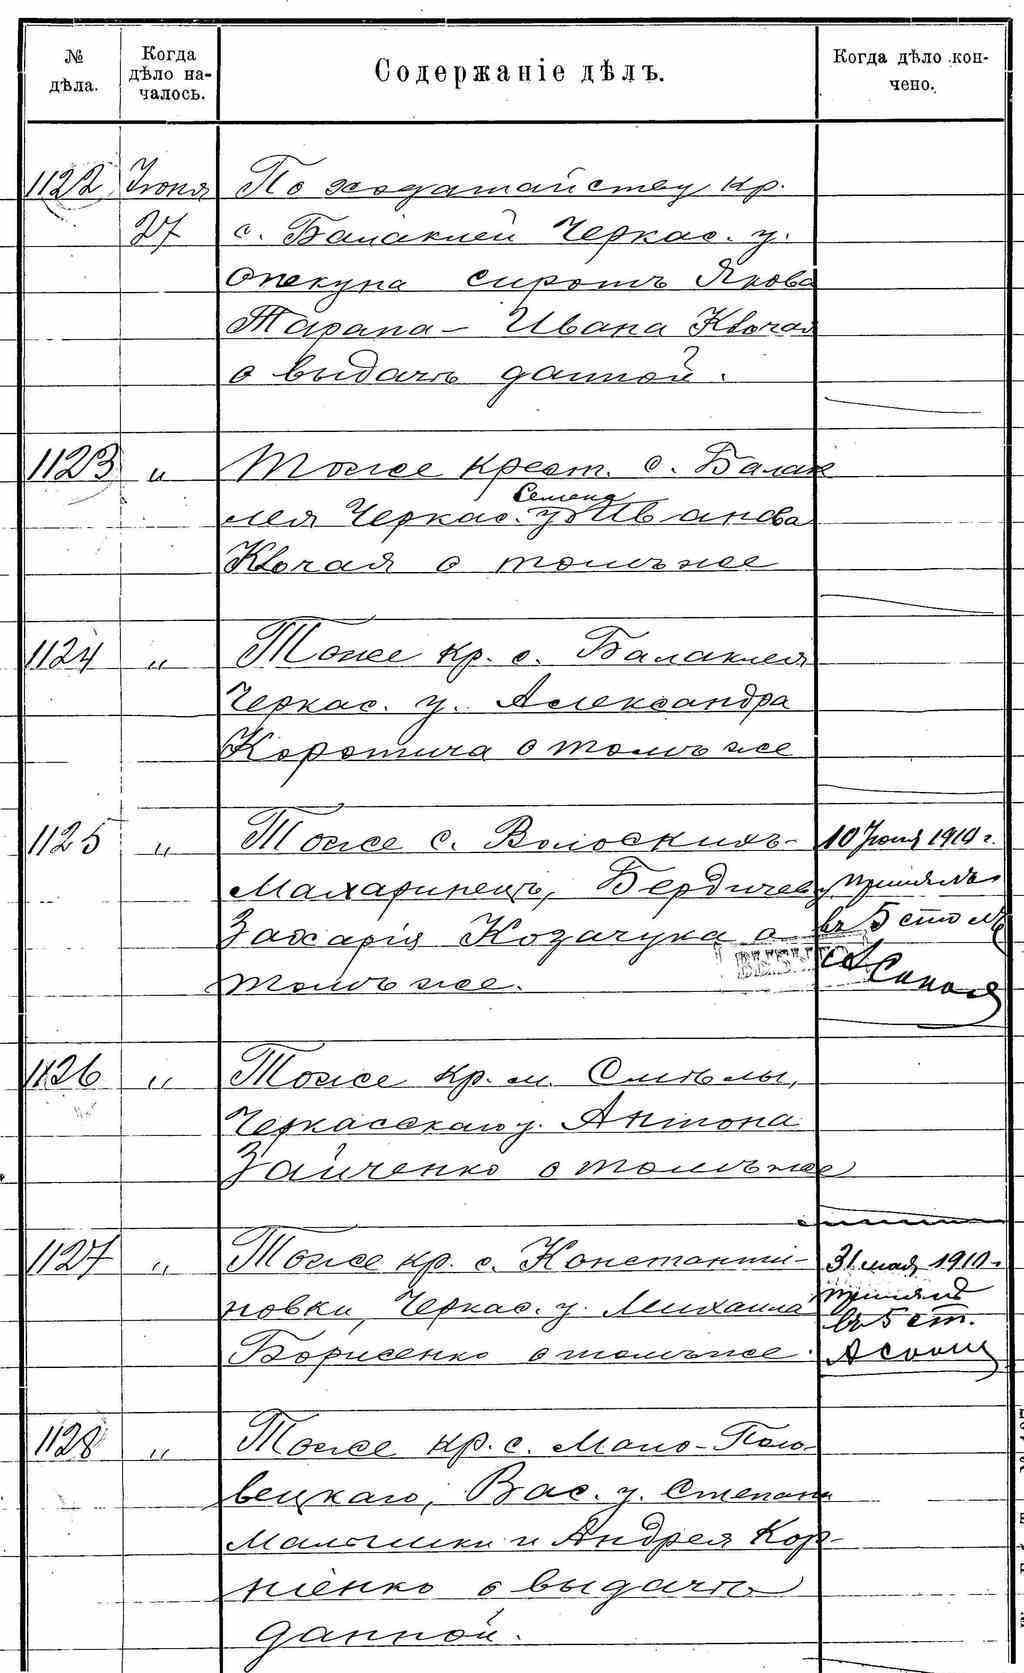 №
дѣла.
Когда
дѣло на-
чалось.
Содержаніе дѣлъ.
Когда дѣло кон-
чено.
1122 Іюня По ходатайству кр.
27 с. Балаклеи Черкас. у.
опекуна сиротъ Якова
Тарана - Ивана Квочая
о выдачѣ данной.
1123 " Тоже крест. с. Балак
лея Черкас. у. Ивано́ва
Семена
Квочая о томъ же
1124 " Тоже кр. с. Балаклея
Черкас. у. Александра
Коротича о томъ же
1125 " Тоже с. Волоскихъ- 10 Іюня 1910 г.
Махаринецъ, Бердичев у. принялъ
Захарія Козачука о въ 5 столъ
томъ же.
1126 " Тоже кр. м. Смѣлы,
Черкасскаго у. Антона
Зайченко о томъ же
1127 " Тоже кр. с. Константи- 31 мая 1910 г.
новки, Черкас. у. Михаила принялъ
Борисенко о томъ же. въ 5 ст.
1128 " Тоже кр. с. Мало-Поло-
вецкаго, Вас. у. Степана
и Андрея Кор-
ніенко о выдачѣ
данной.